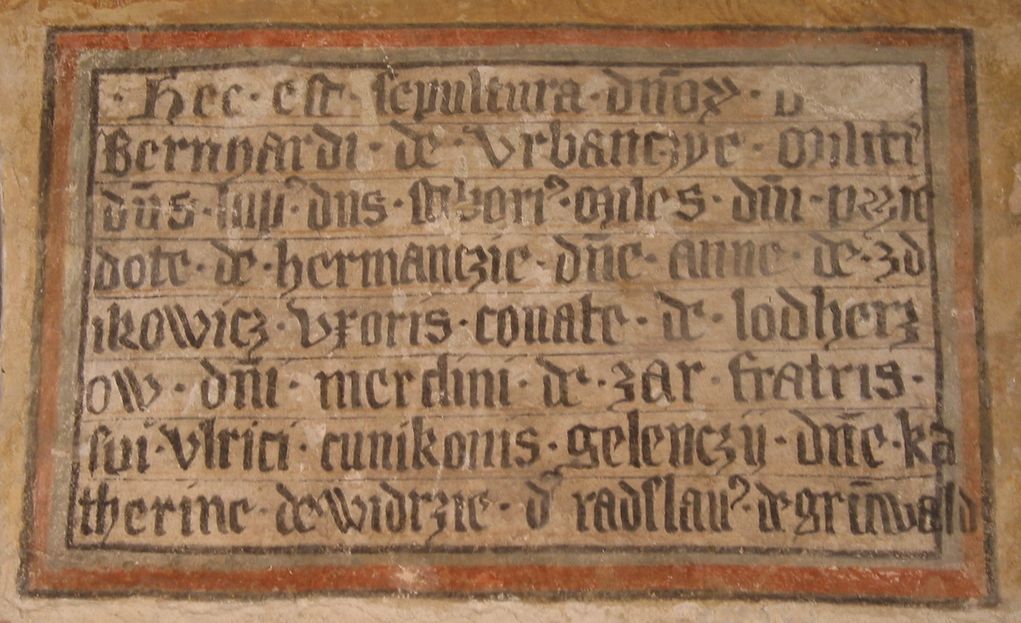 · Hec · est · sepultura · dn̄oꝝ ·
Bernhardi · de · Vrbanczye · militꝭ
dn̄s · · dns · · miles · dn̄i ·
dote · de · hermanczie · dn̄e · anne · de · zd
ikowicz · vxoris · conate · de · lodherz
ow · dn̄i · merclini · de · zar · fratris ·
sui · vlrici · cunikonis · gelenczy · dn̄e · ka
therine · de widrzie · radslauꝰ · de grūwald